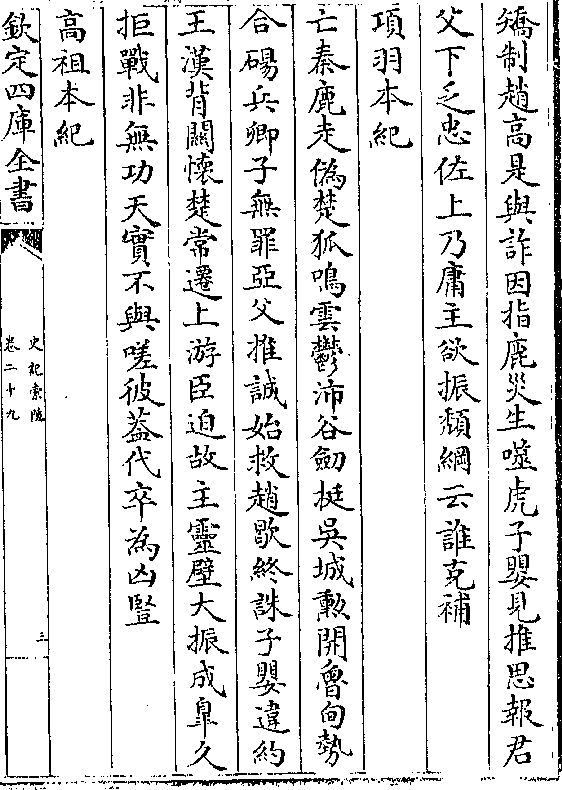 矯制趙高是與詐因指鹿災生噬虎子嬰見推思報君
父下乏忠佐上乃庸主欲振頽綱云誰克補
項羽本紀
亡秦鹿走僞楚狐鳴雲鬱沛谷劒挺吳城勲開魯甸勢
合碭兵卿子無罪亞父推誠始救趙歇終誅子嬰違約
王漢背關懷楚常遷上游臣迫故主靈壁大振成臯久
拒戰非無功天實不與嗟彼蓋代卒為凶豎
高祖本紀
欽定四庫全書
史記索隠
卷二十九
三